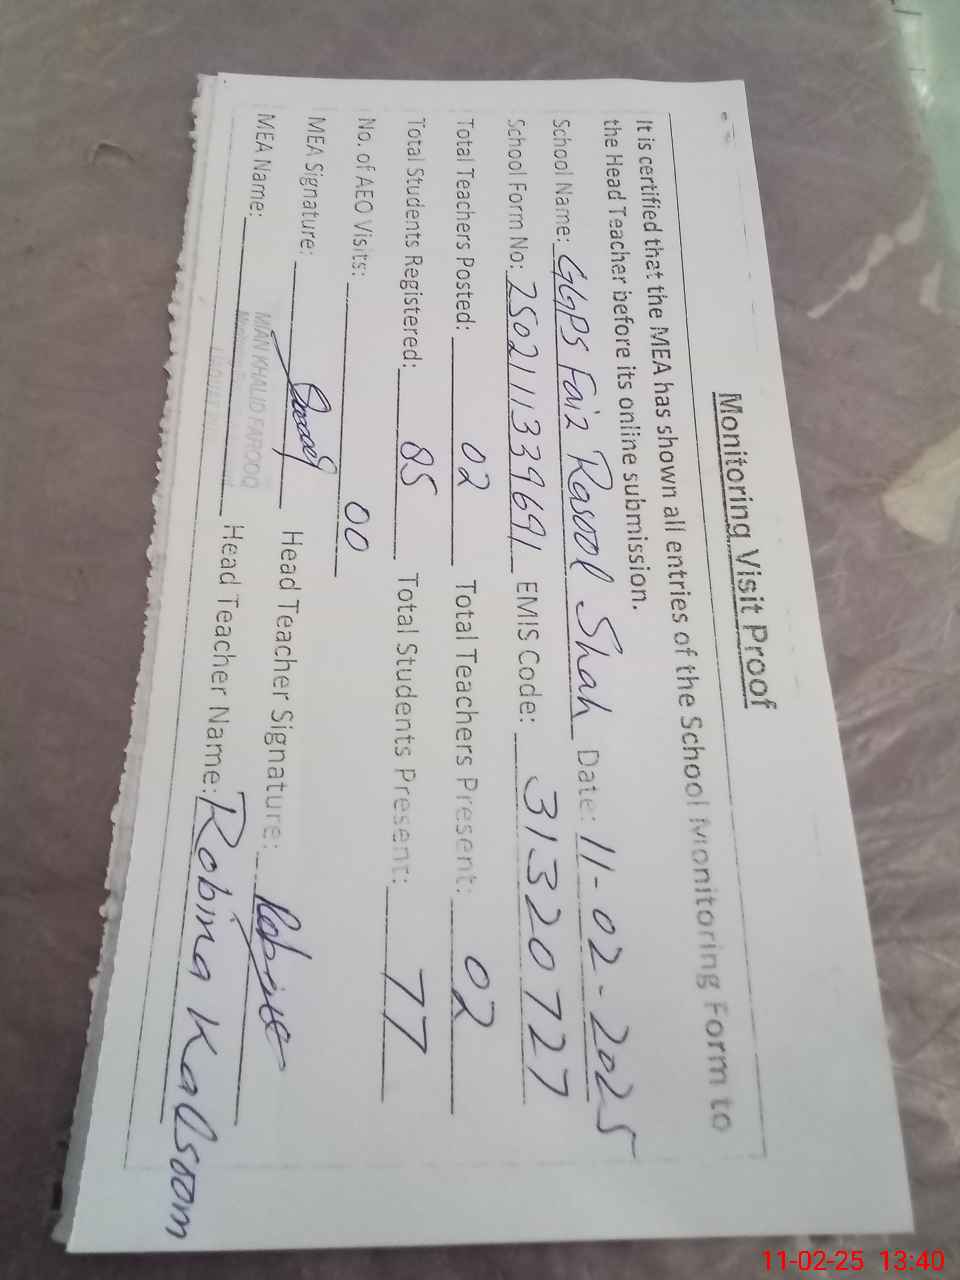 Monitoring Visit Proof
It is certified that the MEA has shown all entries of the School Monitoring Form to
the Head Teacher before its online submission.
School Name: GGPS Faiz Rasool Shah Date: 11-02-2025
School Form No: 250211339691 EMIS Code: 31320727
Total Teachers Posted: 02 Total Teachers Present: 02
Total Students Registered: 85 Total Students Present: 77
No. of AEO Visits: 00
MEA Signature: Head Teacher Signature: Robina
MEA Name: Head Teacher Name: Robina Kalsoom
MIAN KHALID FAROOQ
11-02-25 13:40